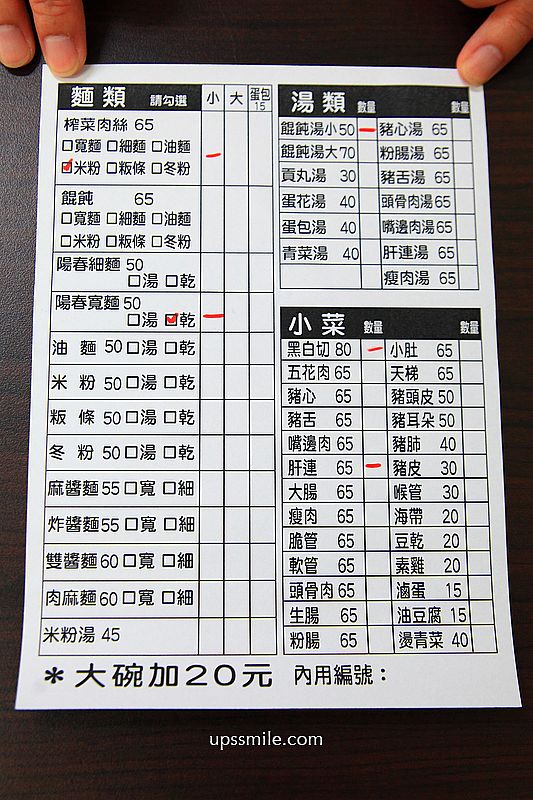 麵類 請勾選 小 大 蛋包15
榨菜肉絲 65
□寬麵 □細麵 □油麵
☑米粉 □粄條 □冬粉
餛飩 65
□寬麵 □細麵 □油麵
□米粉 □粄條 □冬粉
陽春細麵 50
□湯 □乾
陽春寬麵 50
□湯 ☑乾
油麵 50 □湯 □乾
米粉 50 □湯 □乾
粄條 50 □湯 □乾
冬粉 50 □湯 □乾
麻醬麵 55 □寬 □細
炸醬麵 55 □寬 □細
雙醬麵 60 □寬 □細
肉麻麵 60 □寬 □細
米粉湯 45
湯類 數量 數量
餛飩湯小 50 豬心湯 65
餛飩湯大 70 粉腸湯 65
貢丸湯 30 豬舌湯 65
蛋花湯 40 頭骨肉湯 65
蛋包湯 40 嘴邊肉湯 65
青菜湯 40 肝連湯 65
瘦肉湯 65
小菜 數量 數量
黑白切 80 小肚 65
五花肉 65 天梯 65
豬心 65 豬頭皮 50
豬舌 65 豬耳朵 50
嘴邊肉 65 豬肺 40
肝連 65 豬皮 30
大腸 65 喉管 30
瘦肉 65 海帶 20
脆管 65 豆乾 20
軟管 65 素雞 20
頭骨肉 65 滷蛋 15
生腸 65 油豆腐 15
粉腸 65 燙青菜 40
＊大碗加20元 內用編號：
upssmile.com